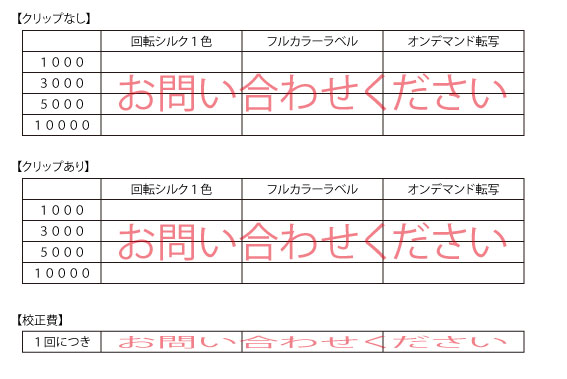 【クリップなし】
回転シルク１色 フルカラーラベル オンデマンド転写
１０００
３０００
お問い合わせください
５０００
１００００
【クリップあり】
回転シルク１色 フルカラーラベル オンデマンド転写
１０００
３０００
お問い合わせください
５０００
１００００
【校正費】
１回につき お問い合わせください